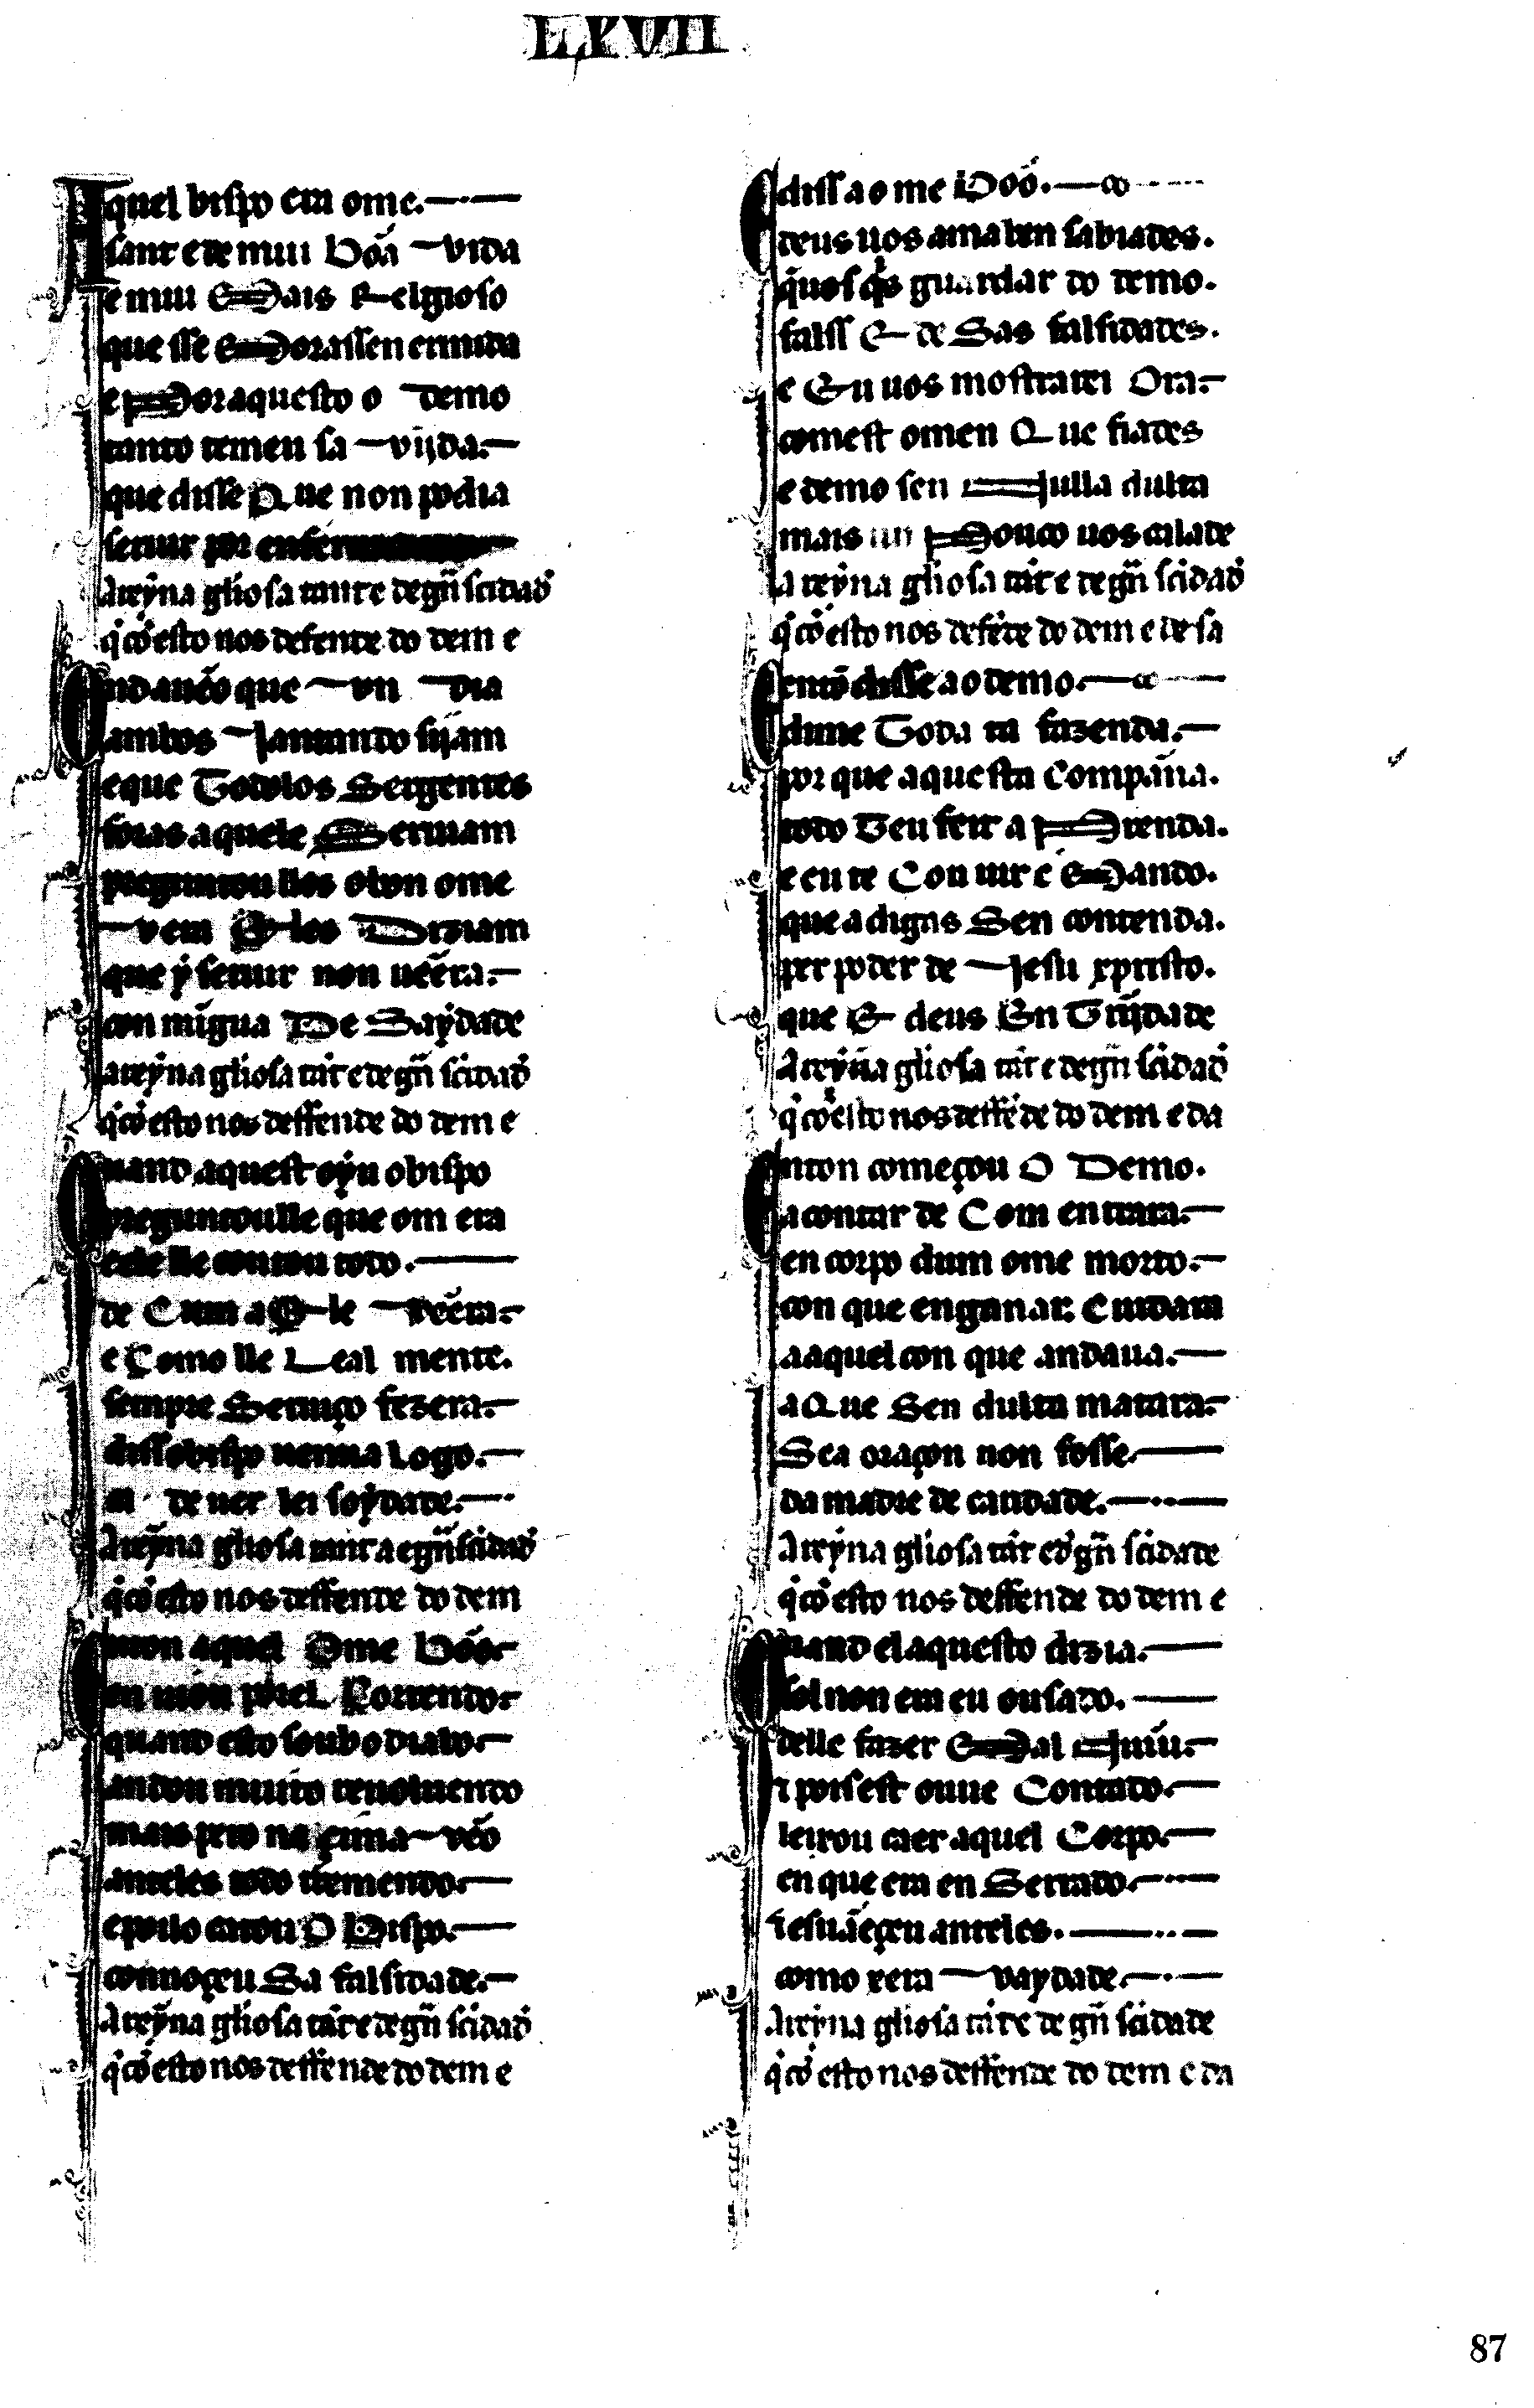 LXVII
Aquel bispo era ome.
sant e de mui bõa vida
e mui Mais Religioso
que sse Morassen ermida
e Por aquesto o demo
tanto temeu sa vijda.
que disse Que non podia
seruir por enfer
A reỹna gliosa tant e de gñ scidad
q̇ cõ esto nos defende do dem e
Ond auẽo que vn dia
ambos Jantando sijam
e que Todolos Sergentes
foras aquele Seruiam
preguntoulles o bon ome
v era Eles Dizian
que ẏ seruir non uẽera.
con mĩgua De Saỹdade
a reỹna gliosa tãt e de gñ scidad
q̇ cõ esto nos deffende do dem e
Quand aquest oẏu o bispo
preguntoulle que om era
e ele lle contou todo.
de Cum a Ele vẽera.
e Como lle Leal mente.
sempre Seruiço fezera.
diss o bispo uenna Logo.
de ueer lei soẏdade.
A reỹna gliosa tant a e gñ scidad
q̇ cõ esto nos deffende do dem
Enton aquel Ome bõo.
en uiou por el Correndo.
quand esto soub o diabo.
andou muito reuoluendo
mais pero na çima vẽo
ant eles todo tremendo.
e poilo catou O Bispo.
connoçeu Sa falsidade.
A reỹna gliosa tãt e de gñ scidad
q̇ cõ esto nos deffende do dem e
E diss a o me bõo.
deus uos ama ben sabiades.
q̇ uos q̇s guardar do demo.
falss E de Sas falsidades.
e Eu uos mostrarei Ora.
com est omen Que fiades
e demo sen Nulla dulta
mais un Pouco uos calade
A reỹna gliosa tãt e de gñ scidad
q̇ cõ esto nos defẽde do dem e de sa
Entõ disse a o demo.
di me Toda ta fazenda.
por que aquesta Compãna.
todo Teu feit a Prenda.
e eu te Coniur e Mando.
que a digas Sen contenda.
per poder de Jesu xpristo.
que E deus En Trijdade
A reỹna gliosa tãt e de gñ scidad
q̇ cõ esto nos deffẽde do dem e da
Enton começou O Demo.
a contar de Com entrara.
en corpo dum ome morto.
con que enganar Cuidara
a aquel con que andaua.
a Que Sen dulta matara.
Se a oraçon non fosse.
da madre de caridade.
A reỹna gliosa tãt e d gñ scidade
q̇ cõ esto nos deffende do dem e
Quand el aquesto dizia.
sol non era eu ousado.
delle fazer Mal Niũu.
E pois est ouue Contado.
leixou caer aquel Corpo.
en que era en Serrado.
e esuãeçeu ant eles.
como xera vaydade.
A reỹna gliosa tãt e de gñ scidade
q̇ cõ esto nos deffende do dem e da
87